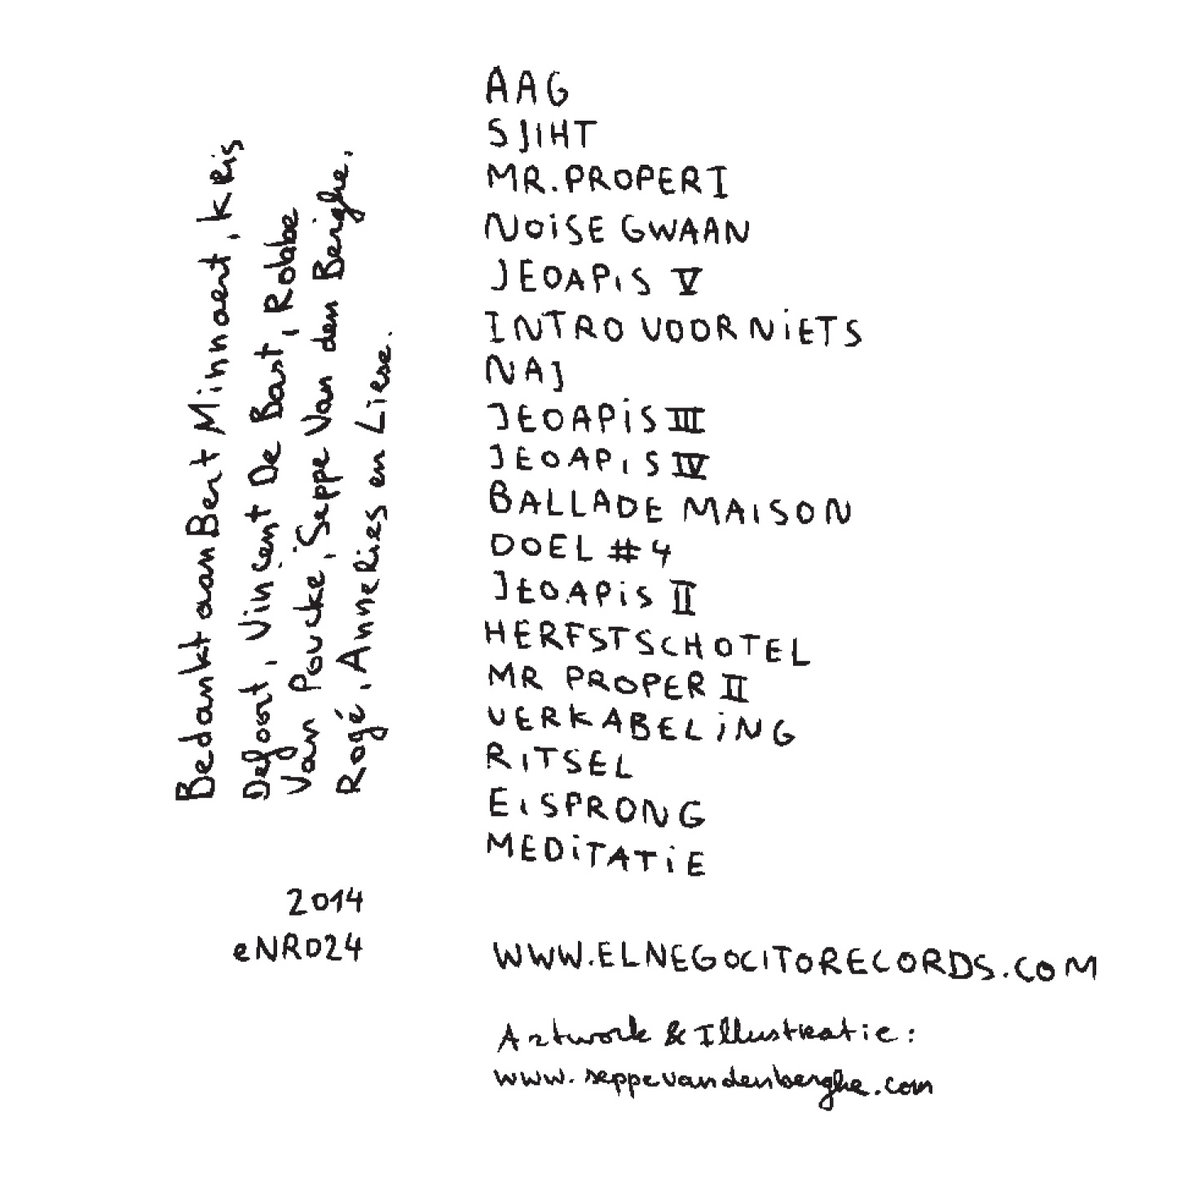 AAG
SJIHT
MR.PROPER I
NOiSE GWAAN
JEOAPiS V
INTRO VOOR NiETS
NAJ
JEOAPiS III
JEOAPiS IV
BALLADE MAISON
DOEL #4
JEOAPiS II
HERFSTSCHOTEL
MR PROPER II
VERKABELiNG
RiTSEL
EiSPRONG
MEDiTATiE
Bedankt aan Bert Minnaert, Kris
Defoort, Vincent De Bast, Robbe
Van Poucke, Seppe Van den Berghe,
Rogé, Annelies en Liese.
2014
eNR024
WWW.ELNEGOCITORECORDS.COM
Artwork & Illustratie:
www.seppevandenberghe.com